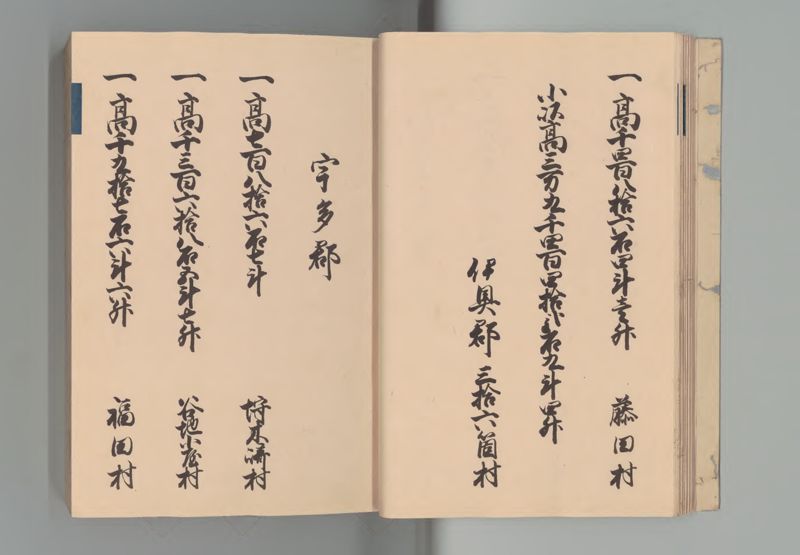 一高千四百八拾六石四斗壱升 藤田村
小以高三万九千四百四拾弐石九斗四升
伊具郡 三拾六箇村
宇多郡
一高七百八拾六石七斗 駒ケ嶺村
一高千三百六拾八石五斗七升 谷地小屋村
一高千九拾七石六斗六升 福田村